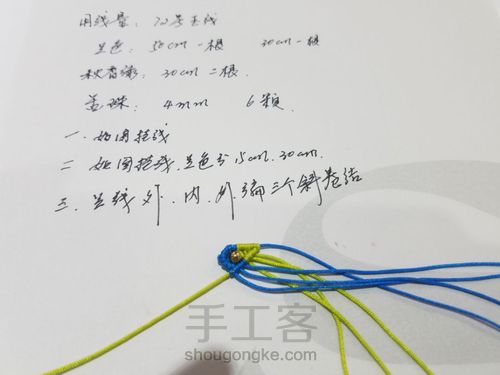 用线量：72号玉线
兰色：50cm一根 30cm一根
秋香绿：30cm二根
盖珠：4mm 6颗
一、如图挂线
二、如图挂线，兰色分15cm、30cm.
三、兰线外、内、外编三个斜卷结
手工客
shougongke.com